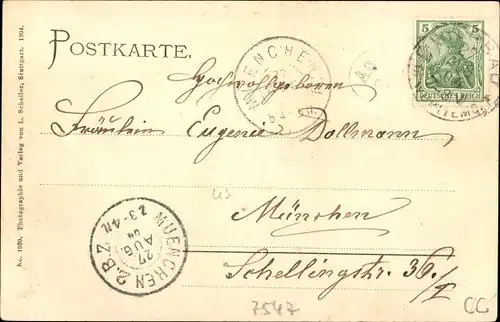 POSTKARTE.
5 5
DEUTSCHES REICH
MUENCHEN
Hochwohlgeboren
Fräulein Eugenie Dollmann
München
Schellingstr. 36/I
MUENCHEN 2.B.Z.
27
AUG
04
3-4N
No. 1920. Photographie und Verlag von L. Schaller, Stuttgart. 1904.
us
7547
CC